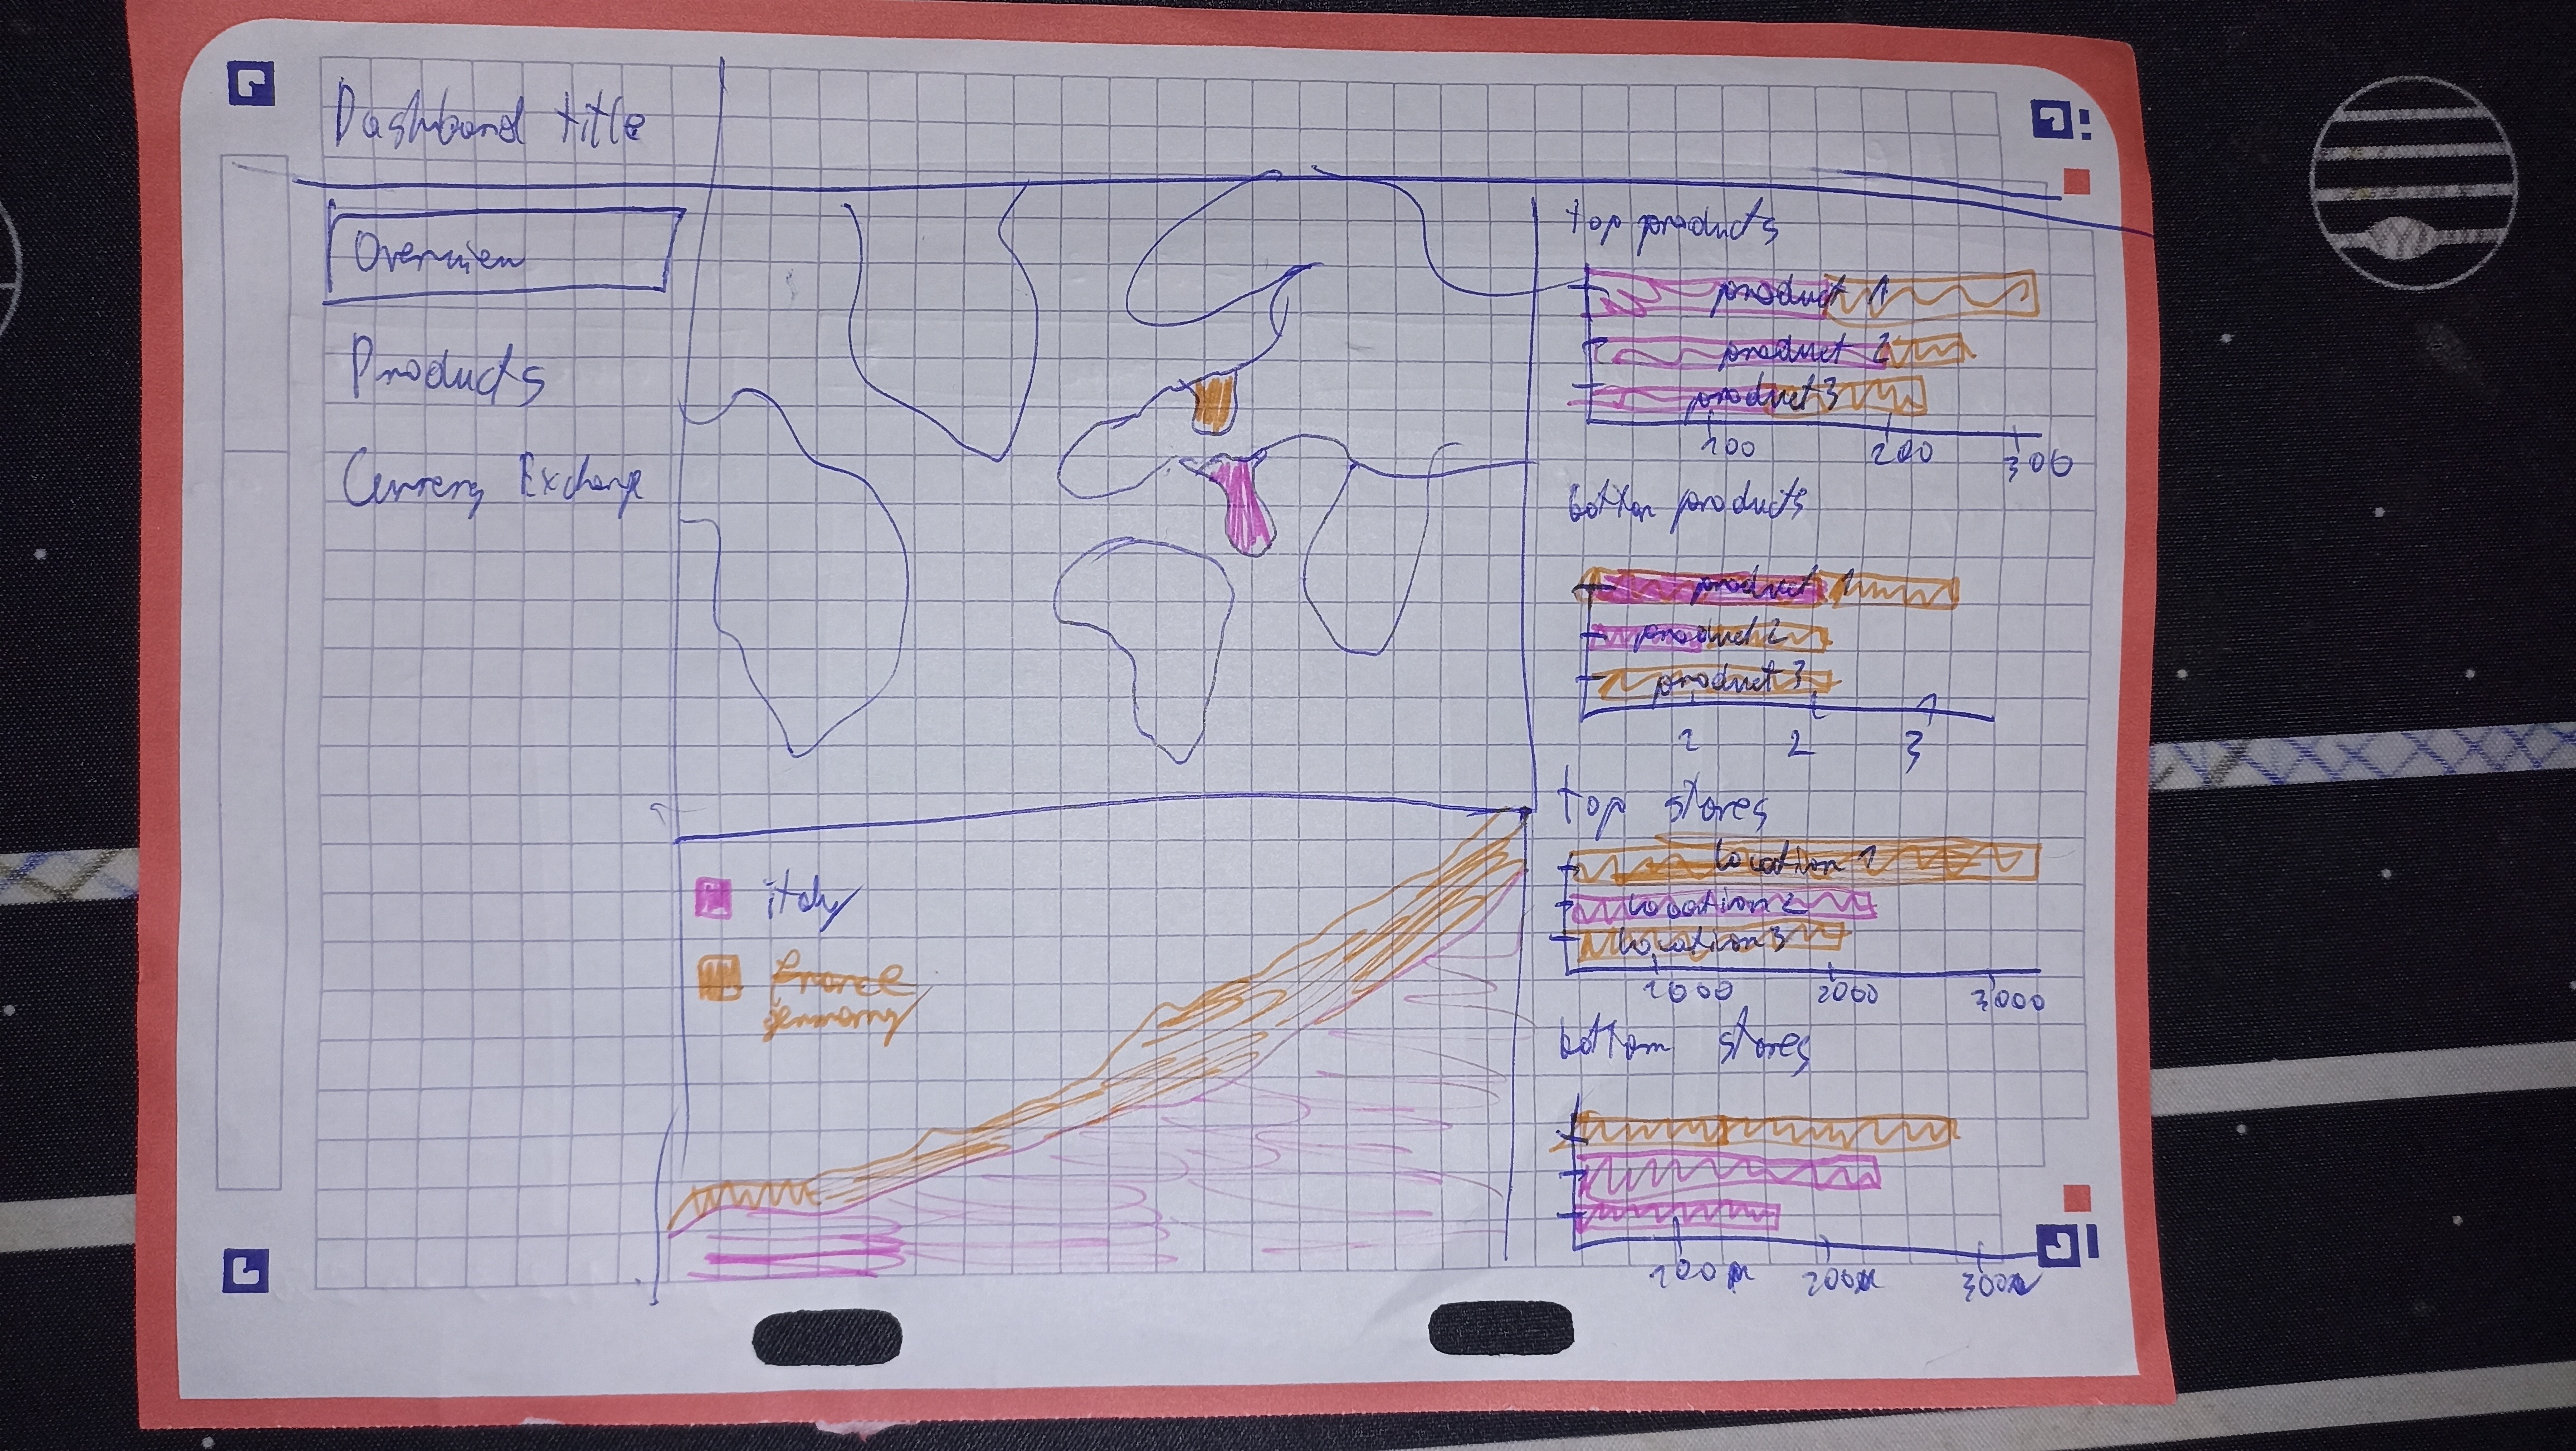 Dashboard title
Overview
Products
Currency Exchange
top products
product 1
product 2
product 3
100 200 300
bottom products
product 1
product 2
product 3
1 2 3
top stores
location 1
location 2
location 3
1000 2000 3000
bottom stores
100 200 300
italy
france
germany